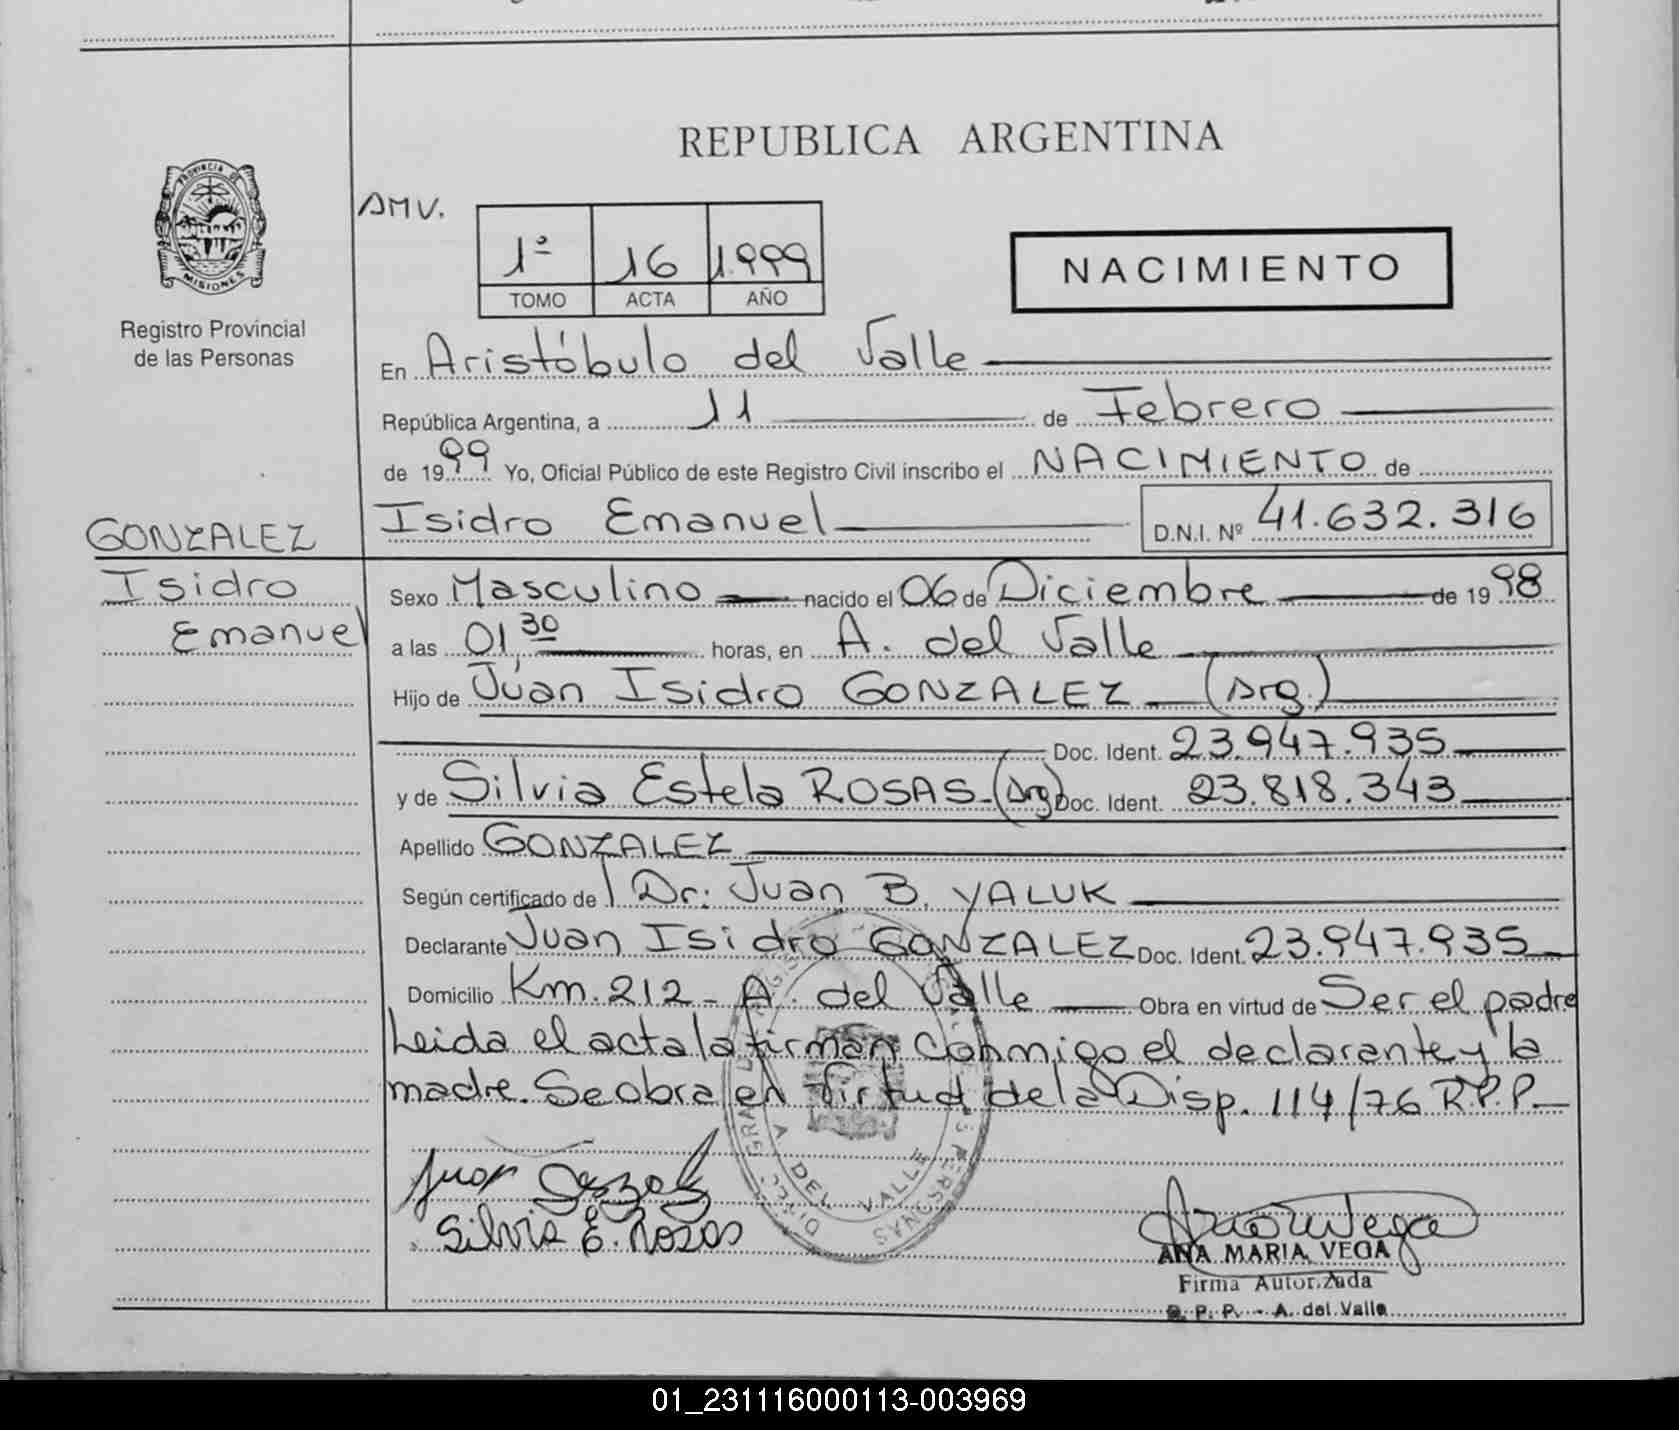 REPUBLICA ARGENTINA
PROVINCIA DE
MISIONES
Registro Provincial
de las Personas
AMV.
1º 16 1.999
TOMO ACTA AÑO
NACIMIENTO
En Aristóbulo del Valle
República Argentina, a 11 de Febrero
de 1999 Yo, Oficial Público de este Registro Civil inscribo el NACIMIENTO de
Isidro Emanuel D.N.I. Nº 41.632.316
GONZALEZ
Isidro
Emanuel
Sexo Masculino nacido el 06 de Diciembre de 1998
a las 01,30 horas, en A. del Valle
Hijo de Juan Isidro GONZALEZ (Arg.)
Doc. Ident. 23.947.935
y de Silvia Estela ROSAS-(Arg) Doc. Ident. 23.818.343
Apellido GONZALEZ
Según certificado de Dr: Juan B. YALUK
Declarante Juan Isidro GONZALEZ Doc. Ident. 23.947.935
Domicilio Km. 212 - A. del Valle Obra en virtud de Ser el padre
Leida el acta la firman conmigo el declarante y la
madre. Se obra en Virtud de la Disp. 114/76 R.P.P.
A DEL VALLE
PERSONAS
Silvia E. Rosas
ANA MARIA VEGA
Firma Autorizada
R. P. P. - A. del Valle
01_231116000113-003969